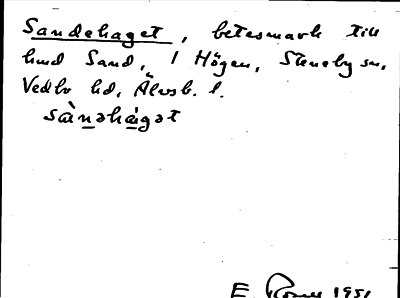 Sandehaget, betesmark till
hmd Sand, 1 Högen, Steneby sn,
Vedbo hd, Älvsb. l.
sàn̲əhá̲gət
E. 1951